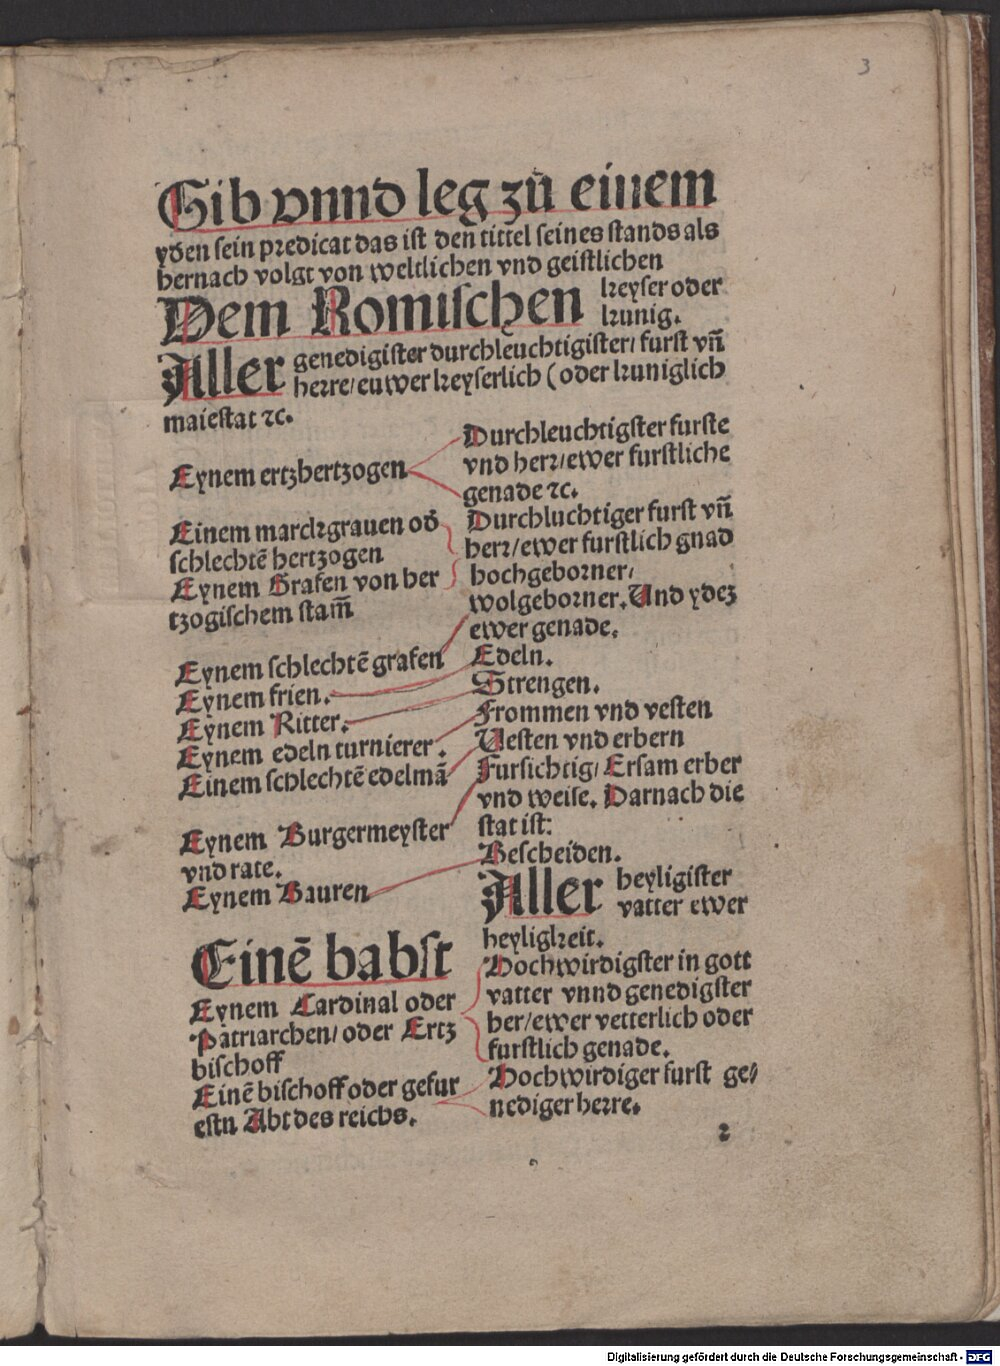 3
Gib vnnd leg zů einem
yden sein predicat das ist den tittel seines stands als
hernach volgt von weltlichen vnd geistlichen
Dem Romischen keyser oder
kunig.
Aller genedigister durchleuchtigister/ furst vn̄
herre/ euwer keyserlich (oder kuniglich
maiestat ⁊c.
Eynem ertzhertzogen
Durchleuchtigster furste
vnd herr/ ewer furstliche
genade ⁊c.
Einem marckgrauen od̕
schlechtē hertzogen
Durchluchtiger furst vn̄
herr/ ewer furstlich gnad
Eynem Grafen von her
tzogischem stam̄
hochgeborner/
wolgeborner. Und ydez
ewer genade.
Eynem schlechtē grafen
Eynem frien.
Edeln.
Eynem Ritter.
Strengen.
Eynem edeln turnierer.
Frommen vnd vesten
Einem schlechtē edelmā
Uesten vnd erbern
Eynem Burgermeyster
vnd rate.
Fursichtig/ Ersam erber
vnd weise. Darnach die
stat ist:
Eynem Bauren
Bescheiden.
Einē babst
Aller heyligister
vatter ewer
heyligkeit.
Eynem Cardinal oder
Patriarchen/ oder Ertz
bischoff
Hochwirdigster in gott
vatter vnnd genedigster
her/ ewer vetterlich oder
furstlich genade.
Einē bischoff oder gefur
estn Abt des reichs.
Hochwirdiger furst ge/
nediger herre.
2
Digitalisierung gefördert durch die Deutsche Forschungsgemeinschaft - DFG